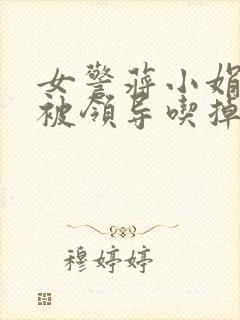 女警蒋小娟
被领导喫掉
穆婷婷